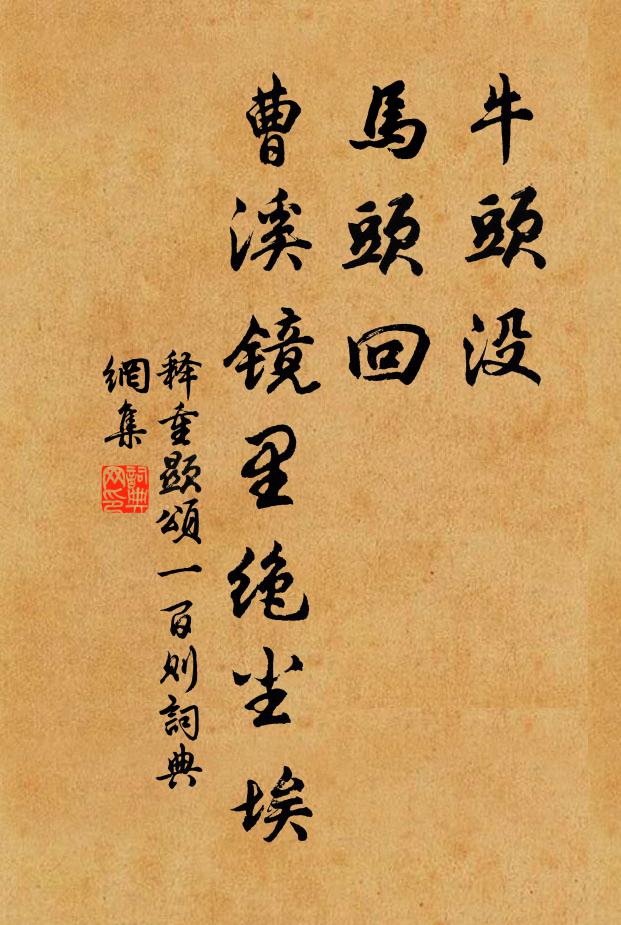 牛頭没
馬頭回
曹溪镜里绝尘埃
释重顯頌一百则詞典
網集
詞典
网印